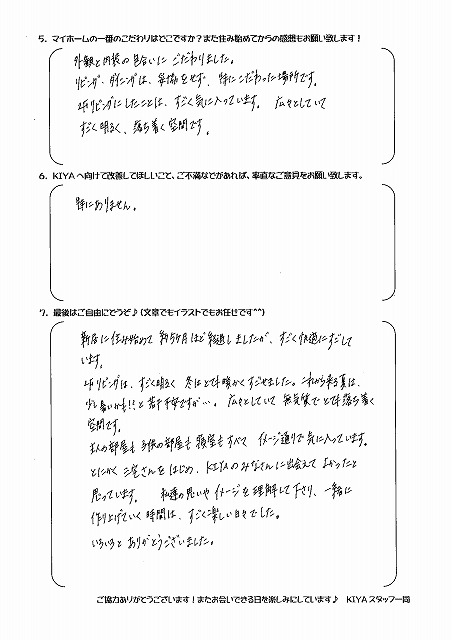 5. マイホームの一番のこだわりはどこですか？また住み始めてからの感想もお願い致します！
外観と内装の色合いに こだわりました。
リビング・ダイニングは、妥協をせず、特にこだわった場所です。
2Fリビングにしたことは、すごく気に入っています。 広々としていて
すごく明るく、落ち着く空間です。
6. KIYAへ向けて改善してほしいこと、ご不満などがあれば、率直なご意見をお願い致します。
特にありません。
7. 最後はご自由にどうぞ♪（文章でもイラストでもお任せです^^）
新居に住み始めて 約5ケ月ほど経過しましたが、すごく快適にすごして
います。
2Fリビングは、すごく明るく 冬はとても暖かくすごせました。これから来る夏は、
少し暑いかも!!と 若干不安ですが…。 広々としていて 無気質で とても落ち着く
空間です。
主人の部屋も 子供の部屋も 寝室も すべて イメージ通りで 気に入っています。
とにかく 三宅さんをはじめ、KIYAのみなさんに出会えて よかったと
思っています。 私達の思いや イメージを 理解して下さり、一緒に
作り上げていく 時間は、すごく楽しい日々でした。
いろいろと ありがとうございました。
ご協力ありがとうございます！またお会いできる日を楽しみにしています♪ KIYAスタッフ一同